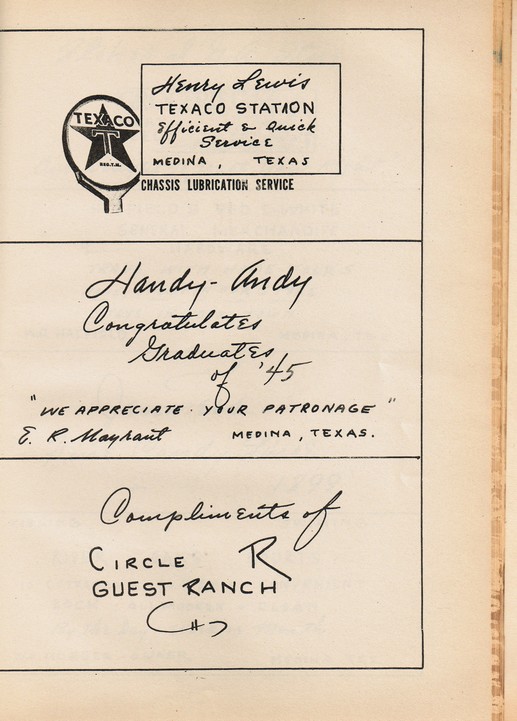 Henry Lewis
TEXACO STATION
Efficient & Quick
Service
MEDINA, TEXAS
TEXACO
T
REG.T.M.
CHASSIS LUBRICATION SERVICE
Handy-Andy
Congratulates
Graduates
of '45
"WE APPRECIATE YOUR PATRONAGE"
E. R. Mayrant MEDINA, TEXAS.
Compliments of
CIRCLE R
GUEST RANCH